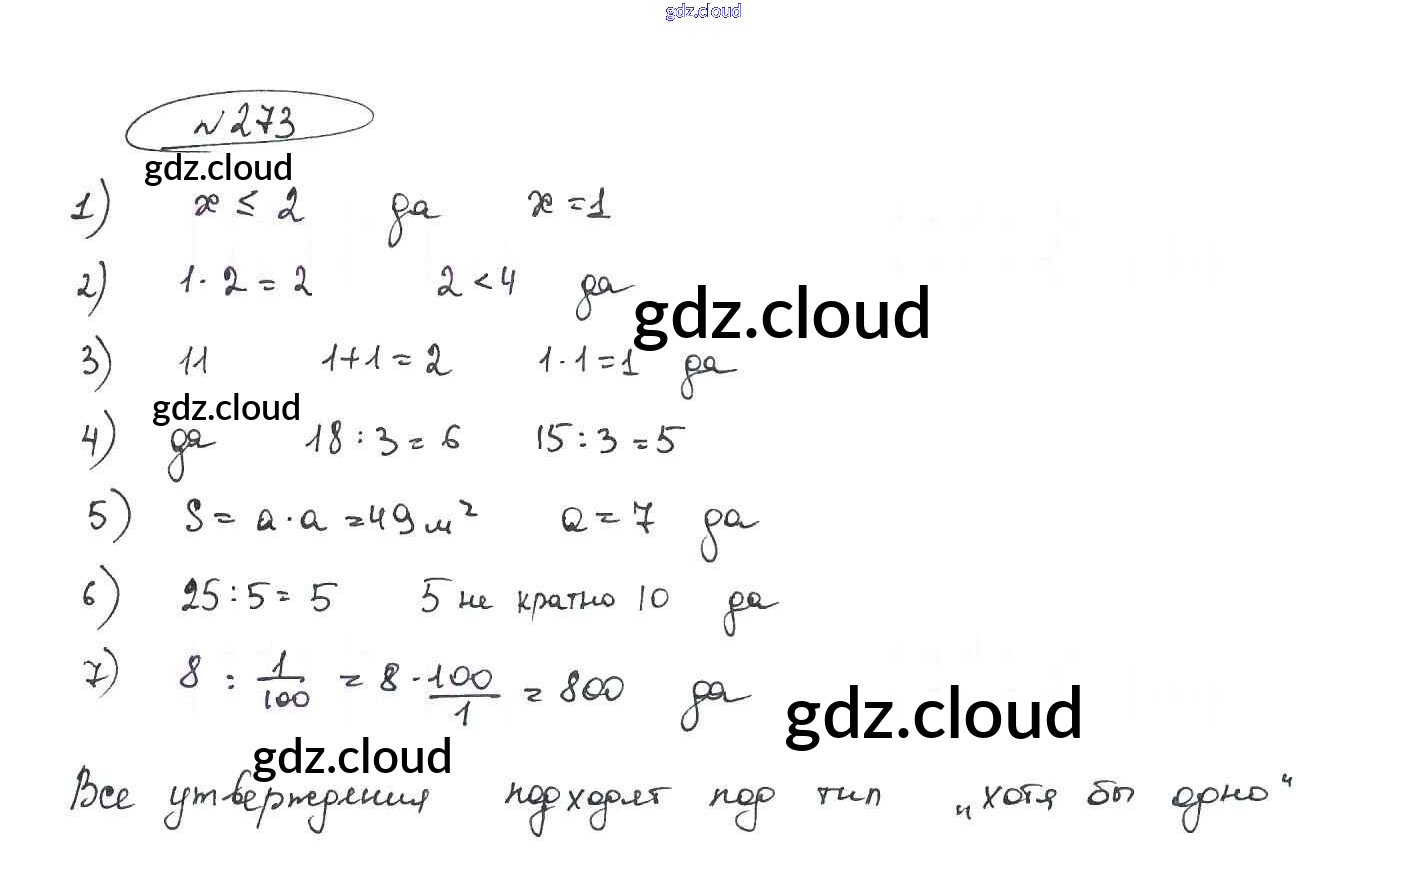 gdz.cloud
№ 273
gdz.cloud
1) x ≤ 2 да x = 1
2) 1 · 2 = 2 2 < 4 да
gdz.cloud
3) 11 1+1 = 2 1 · 1 = 1 да
gdz.cloud
4) да 18 : 3 = 6 15 : 3 = 5
5) S = a · a = 49 м² a = 7 да
6) 25 : 5 = 5 5 не кратно 10 да
7) 8 : 1/100 = 8 · 100/1 = 800 да
gdz.cloud
gdz.cloud
Все утверждения подходят под тип „хотя бы одно“